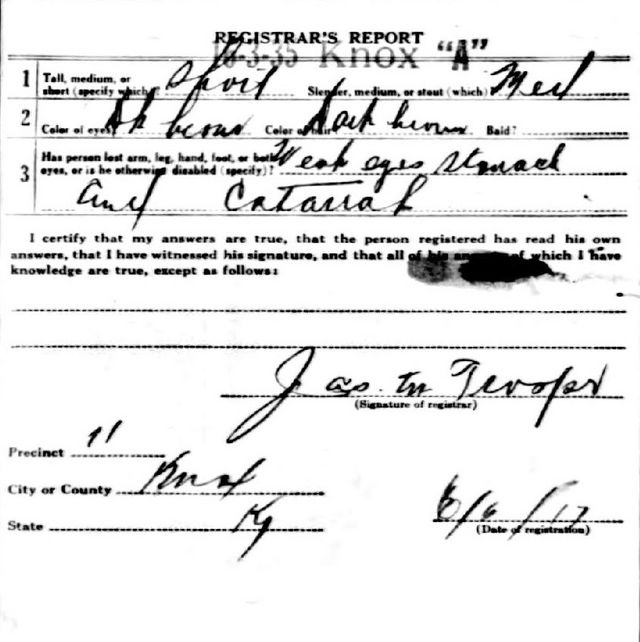 REGISTRAR'S REPORT
16-3-35 Knox "A"
1 Tall, medium, or short (specify which)? Short Slender, medium, or stout (which)? Med
2 Color of eyes? Dk brown Color of hair? Dark brown Bald?
3 Has person lost arm, leg, hand, foot, or both eyes, or is he otherwise disabled (specify)? Weak eyes stomach
and Catarrah
I certify that my answers are true, that the person registered has read his own
answers, that I have witnessed his signature, and that all of his answers of which I have
knowledge are true, except as follows:
Jas. M
(Signature of registrar)
Precinct 11
City or County Knox
State Ky
6/6/17
(Date of registration)